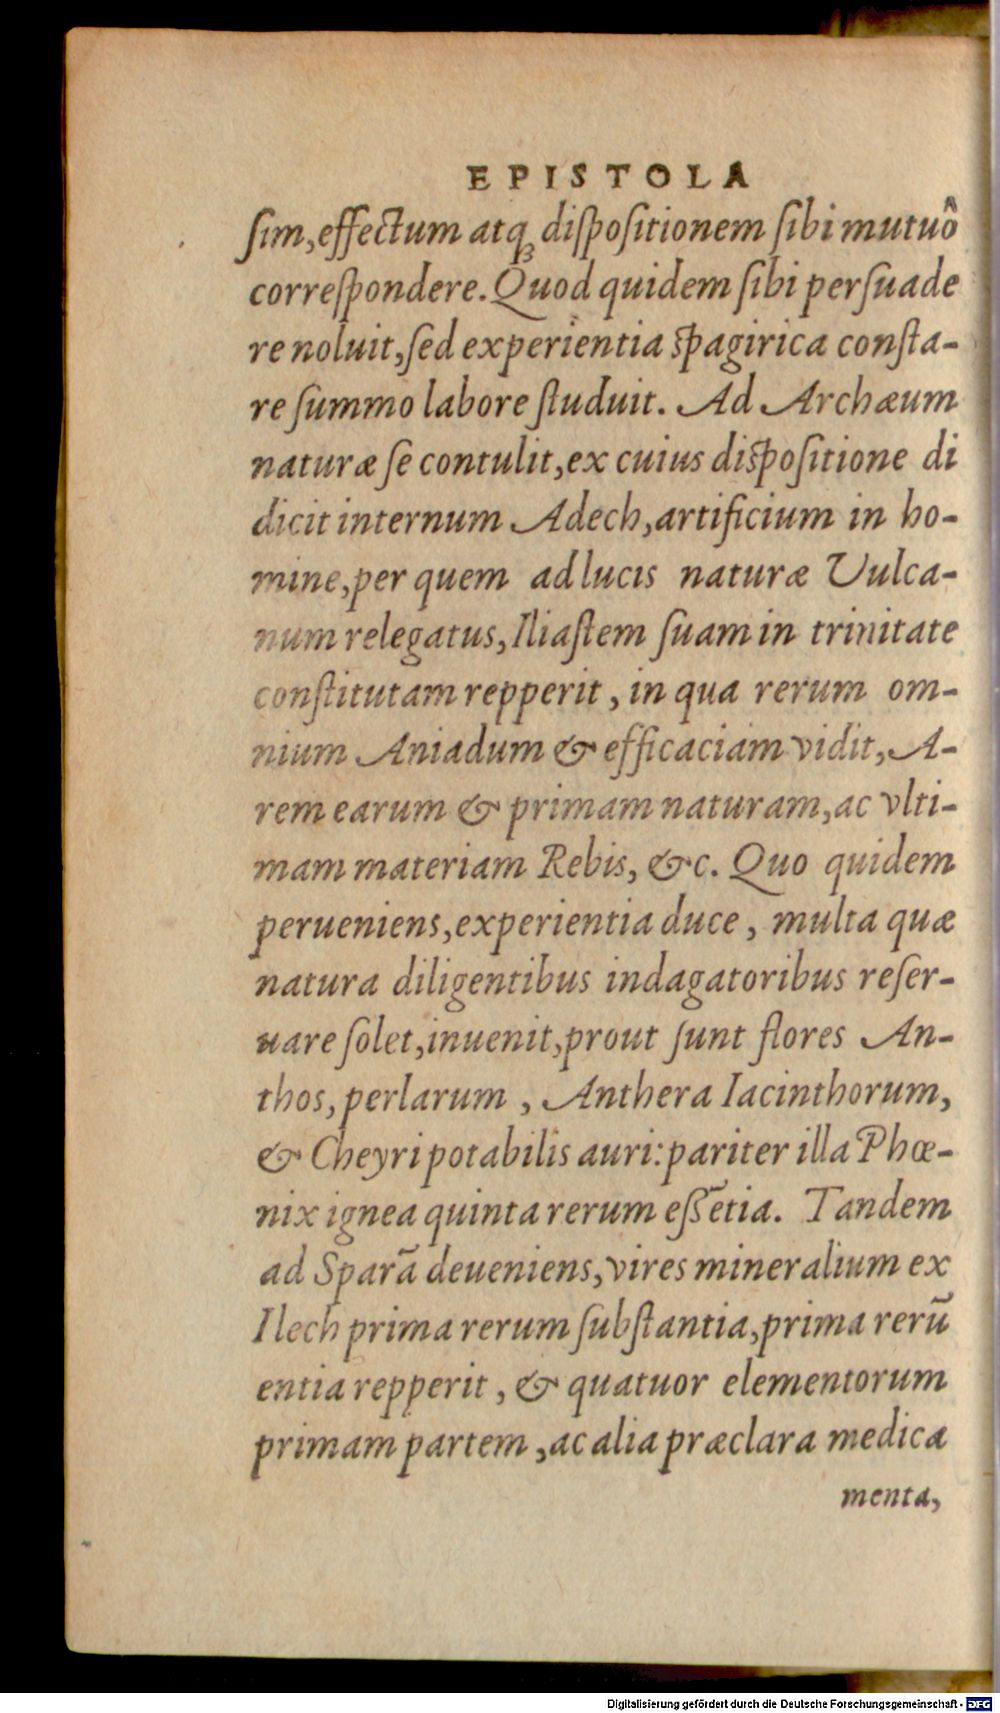 EPISTOLA
ſim, effectum atq́ꝫ diſpoſitionem ſibi mutuô
correſpondere. Quod quidem ſibi perſuade
re noluit, ſed experientia ſpagirica conſta-
re ſummo labore ſtuduit. Ad Archæum
naturæ ſe contulit, ex cuius diſpoſitione di
dicit internum Adech, artificium in ho-
mine, per quem ad lucis naturæ Vulca-
num relegatus, Iliaſtem ſuam in trinitate
conſtitutam repperit, in qua rerum om-
nium Aniadum & efficaciam vidit, A-
rem earum & primam naturam, ac vlti-
mam materiam Rebis, &c. Quo quidem
perueniens, experientia duce, multa quæ
natura diligentibus indagatoribus reſer-
uare ſolet, inuenit, prout ſunt flores An-
thos, perlarum, Anthera Iacinthorum,
& Cheyri potabilis auri: pariter illa Phœ-
nix ignea quinta rerum eſſẽtia. Tandem
ad Sparã deueniens, vires mineralium ex
Ilech prima rerum ſubſtantia, prima rerũ
entia repperit, & quatuor elementorum
primam partem, ac alia præclara medica
menta,
Digitalisierung gefördert durch die Deutsche Forschungsgemeinschaft - DFG